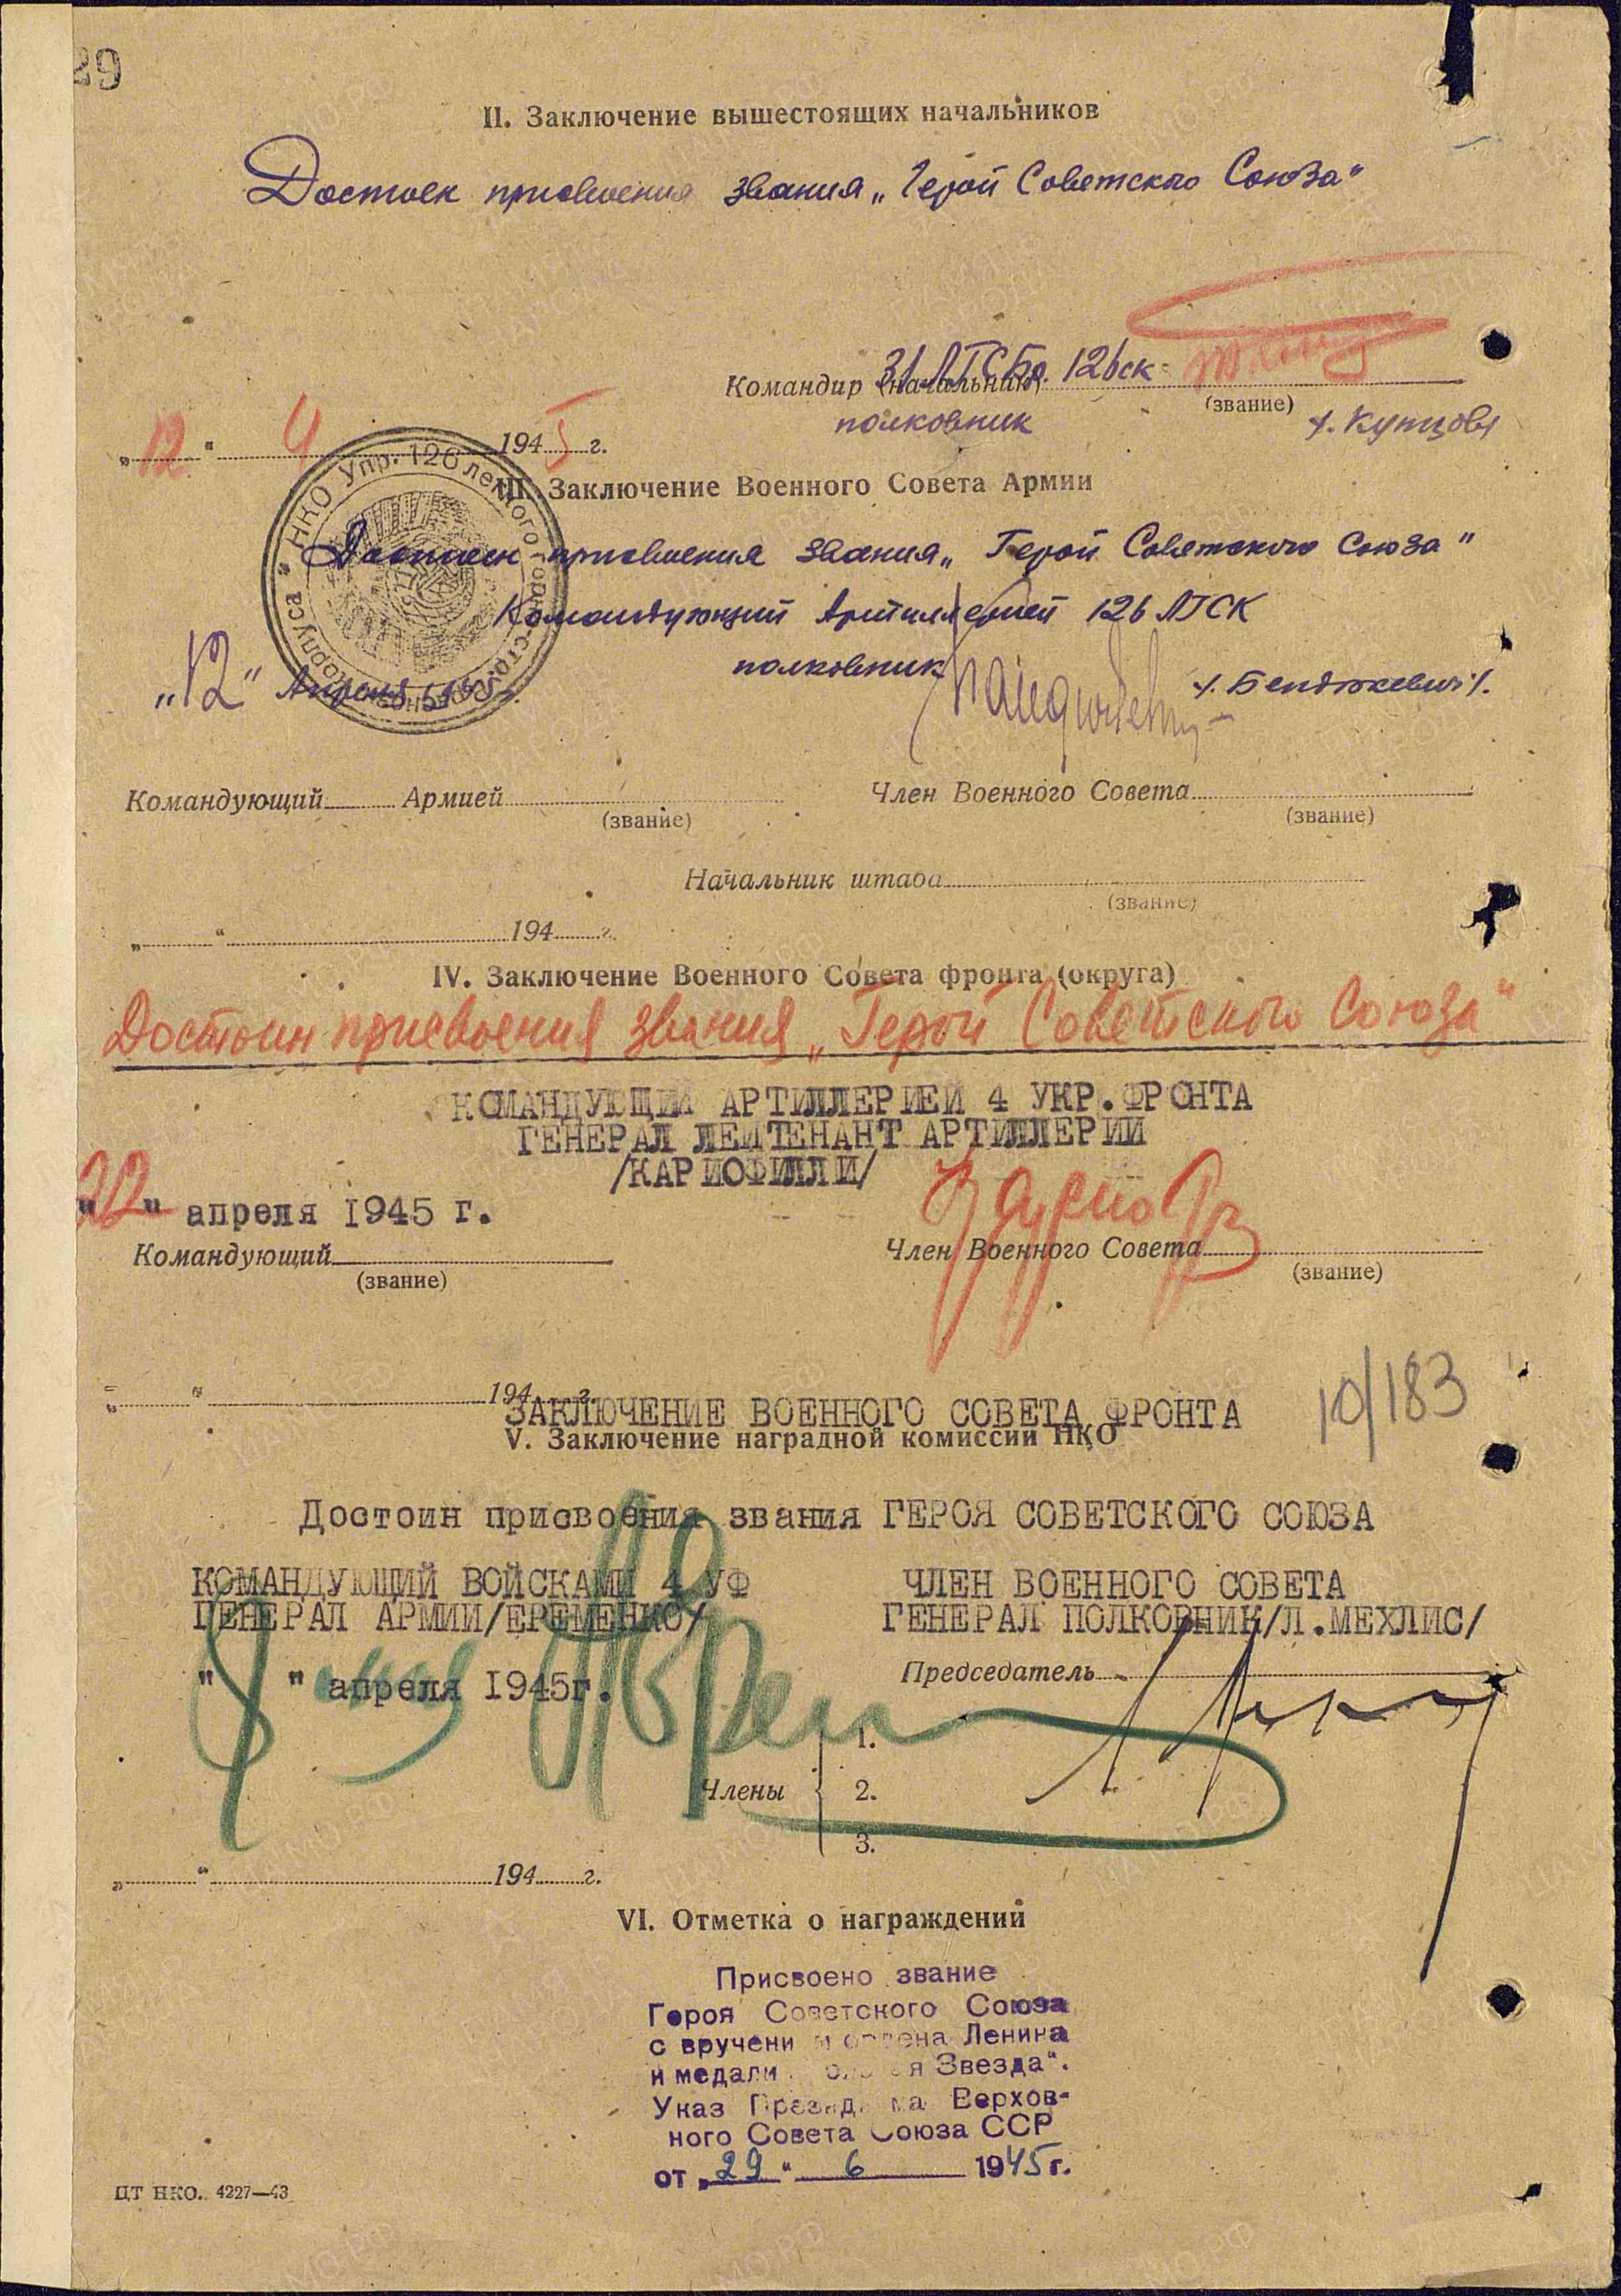 29
II. Заключение вышестоящих начальников
Достоен присвоения звания „Герой Советского Союза"
Командир (начальник) 31 ЛГСБр. 126ск
(звание)
полковник /. Купцов/
„12" 4 1945 г.
НКО Упр. 126 легкого горно-стрелкового корпуса
III. Заключение Военного Совета Армии
Достоен присвоения звания „Герой Советского Союза"
Командующий Артиллерией 126 ЛГСК
полковник /. Бендюкевич/.
„12" Апреля 1945г.
Командующий Армией
(звание)
Член Военного Совета
(звание)
Начальник штаба
(звание)
„ " 194 г.
IV. Заключение Военного Совета фронта (округа)
Достоин присвоения звания „Герой Советского Союза"
КОМАНДУЮЩИЙ АРТИЛЛЕРИЕЙ 4 УКР.ФРОНТА
ГЕНЕРАЛ ЛЕЙТЕНАНТ АРТИЛЛЕРИИ
/КАРИОФИЛЛИ/
"22" апреля 1945 г.
Командующий
(звание)
Член Военного Совета
(звание)
„ " 194 г.
10/183
ЗАКЛЮЧЕНИЕ ВОЕННОГО СОВЕТА ФРОНТА
V. Заключение наградной комиссии НКО
Достоин присвоения звания ГЕРОЯ СОВЕТСКОГО СОЮЗА
КОМАНДУЮЩИЙ ВОЙСКАМИ 4 УФ
ГЕНЕРАЛ АРМИИ/ЕРЕМЕНКО/
ЧЛЕН ВОЕННОГО СОВЕТА
ГЕНЕРАЛ ПОЛКОВНИК/Л.МЕХЛИС/
" " апреля 1945г.
Председатель
Члены
1.
2.
3.
„ " 194 г.
VI. Отметка о награждении
Присвоено звание
Героя Советского Союза
с вручени м ордена Ленина
и медали я Звезда".
Указ Президиума Верхов-
ного Совета Союза ССР
от „29" 6 1945г.
ЦТ НКО. 4227—43